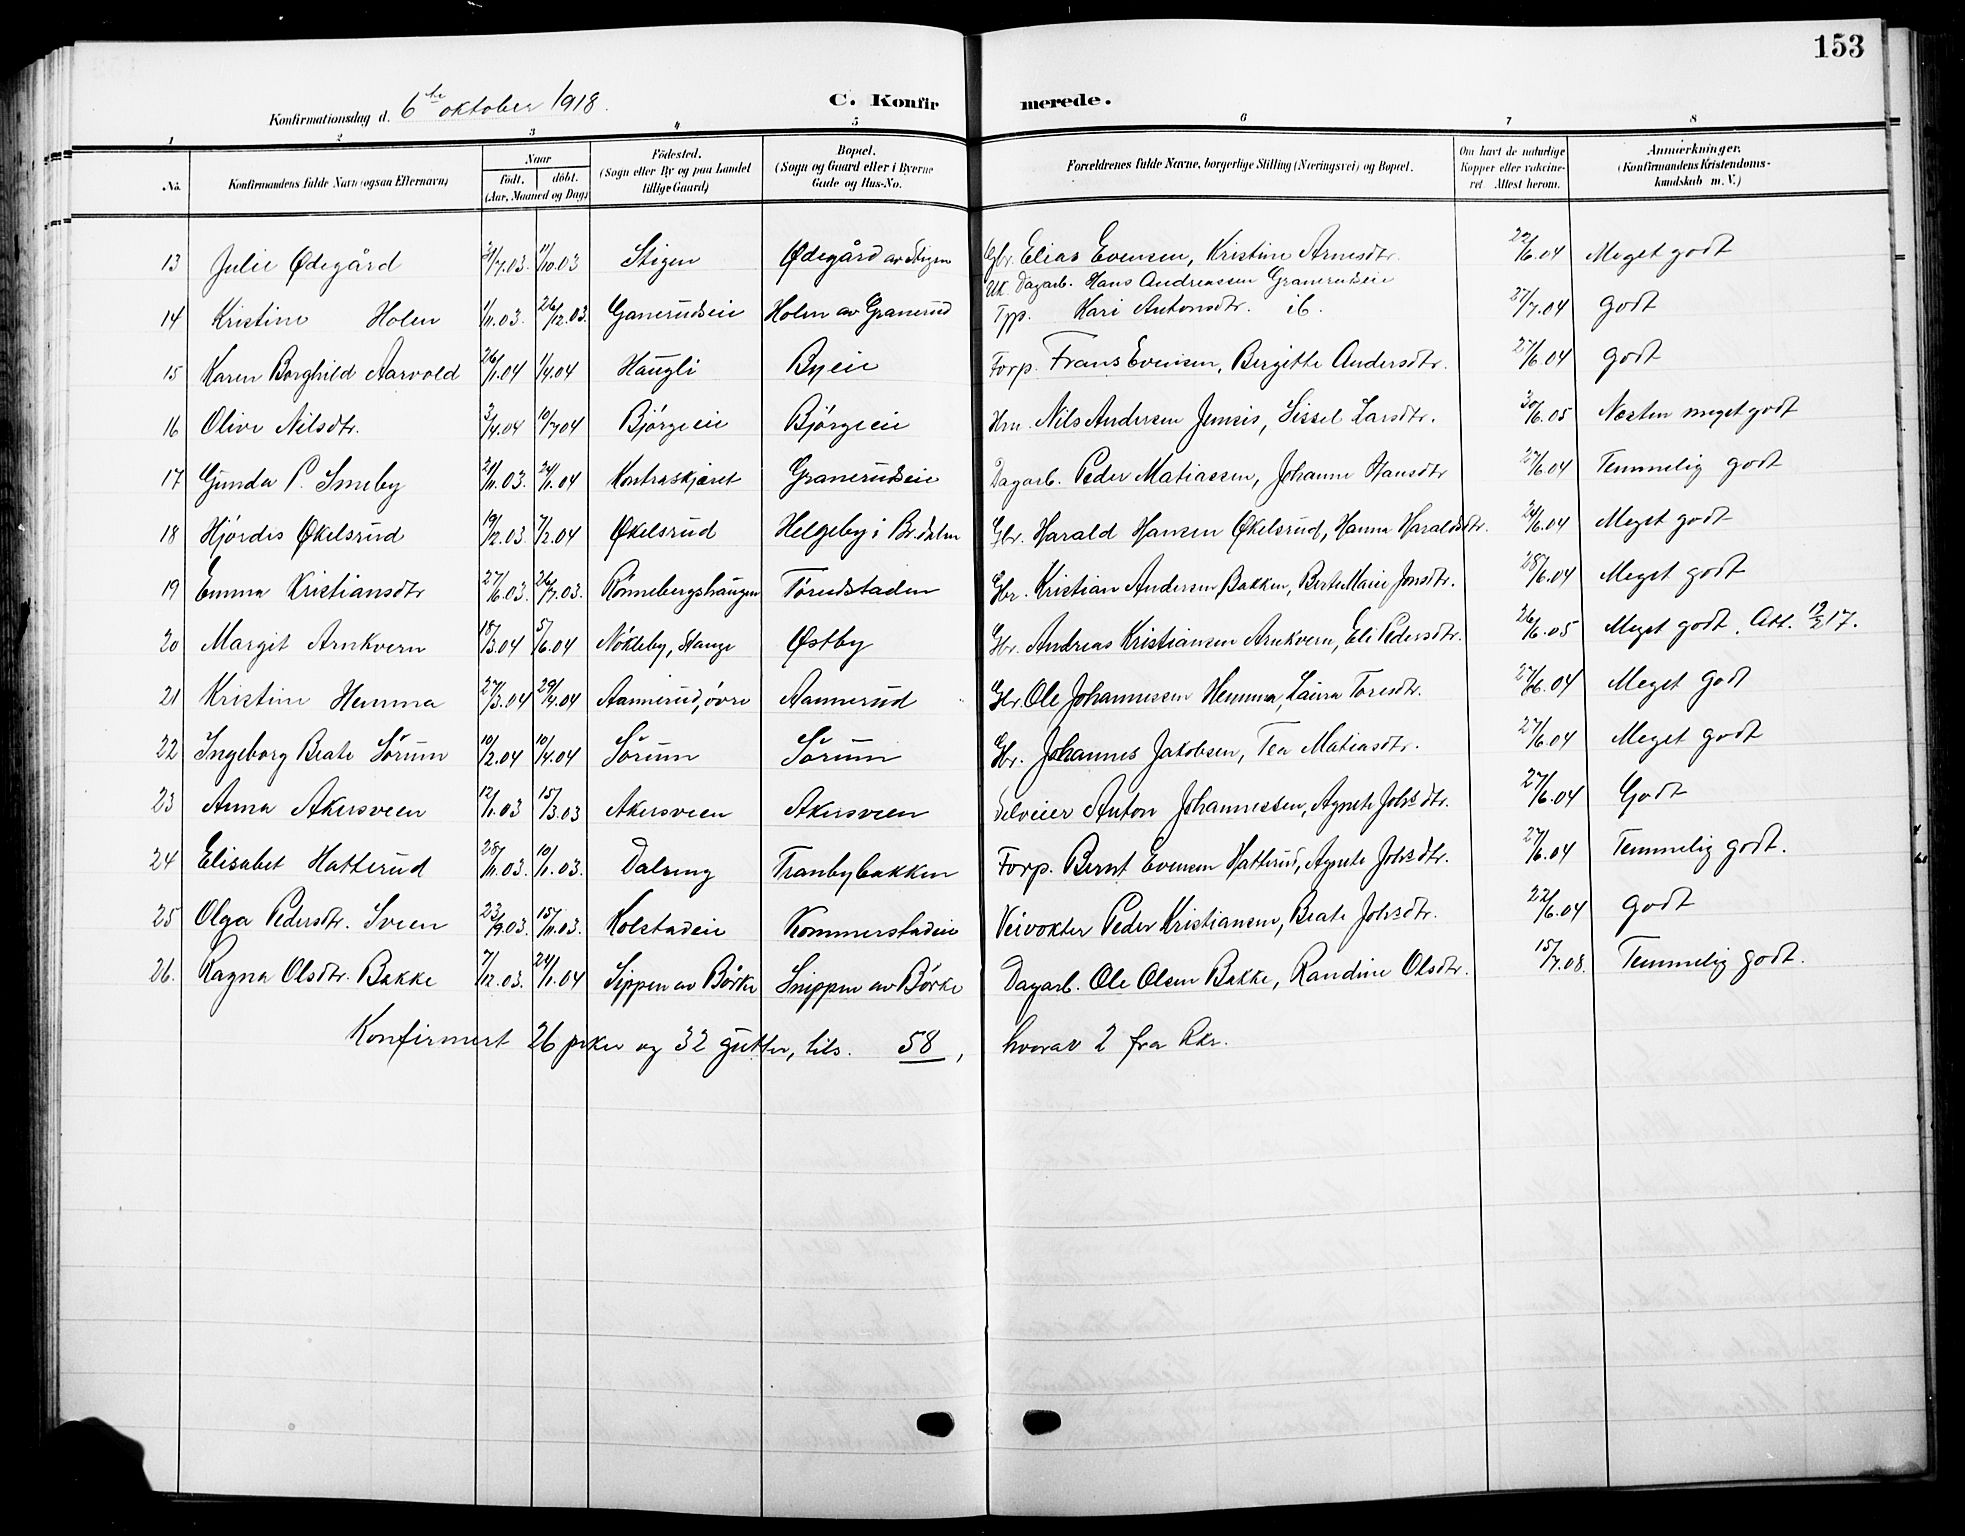 153
Konfirmationsdag d. 6te oktober 1918.
C. Konfirmerede.
1 2 3 4 5 6 7 8
No. Konfirmandens fulde Navn (ogsaa Efternavn) Naar født. døbt. (Aar, Maaned og Dag) Fødested. (Sogn eller By og paa Landet tillige Gaard) Bopæl. (Sogn og Gaard eller i Byerne Gade og Hus-No. Forældrenes fulde Navne, borgerlige Stilling (Næringsvei) og Bopæl. Om havt de naturlige Kopper eller vakcineret. Attest herom. Anmærkninger. (Konfirmandens Kristendomskundskab m. V.)
13 Julie Ødegård /7.03. 11/10.03 Stigen Ødegård av Stigen Gbr. Elias Evensen, Kristine Arnesdtr. 22/6.04 Meget godt
14 Kristine Holen 1/11.03. 26/12.03. Ganerudseie Holen av Granerud Uk. Dagarb. Hans Andreassen Granerudseie
Tpp. Kari Antonsdtr. ib. 27/7.04 godt
15 Karen Borghild Aarvold 26/1.04 1/4.04 Haugli Byeie Forp. Frans Evensen, Bergitte Andersdtr. 27/6.04 godt
16 Olive Nilsdtr. 3/4.04 10/7.04 Bjørgeeie Bjørgeeie Hm. Nils Andersen Jemsis, Sissel Larsdtr. 30/6.05 Næsten meget godt
17 Gunda P. Smeby 2/11.03. 24/1.04 Kontraskjæret Granerudseie Dagarb. Peder Matiassen, Johanne Hansdtr 27/6.04 Temmelig godt
18 Hjørdis Økelsrud 19/12.03 7/2.04 Økelsrud Helgeby i Br.dalen Gbr. Harald Hansen Økelsrud, Hanna Haraldsdtr. 24/6.04 Meget godt
19 Emma Kristiansdtr 27/6.03. 26/7.03. Rønnebergshaugen Torudstaden Gbr. Kristian Andersen Bakken, Berte Marie Jonsdtr. 28/6.04 Meget godt
20 Margit Arnkvern 18/3.04 5/6.04 Nøkleby, Stange Østby Gbr. Andreas Kristiansen Arnkvern, Eli Pedersdtr. 26/6.05 Meget godt. Att. 12/2 17.
21 Kristine Hemma 27/3.04 29/4.04 Aannerud, øvre Aannerud Gbr. Ole Johannessen Hemma, Laura Toresdtr. 27/6.04 Meget godt
22 Ingeborg Beate Sørum 10/2.04 10/4.04 Sørum Sørum Gbr. Johannes Jakobsen, Tea Matiasdtr. 27/6.04 Meget godt
23 Anna Akersveen 12/1.03 15/3.03 Akersveen Akersveen Selveier Anton Johannessen, Agnete Johsdtr. 27/6.04 Godt
24 Elisabet Hatterud 28/11.03. 10/1.03. Dalseng Tranbybakken Forp. Bernt Evensen Hatterud, Agnete Johsdtr. 27/6.04 Temmelig godt.
25 Olga Pedersdtr. Sveen 23/9.03. 15/11.03. Kolstadeie Kommerstadeie Veivokter Peder Kristiansen, Beate Johsdtr. 22/6.04 godt
26. Ragna Olsdtr. Bakke 7/12.03. 24/1.04 Sippen av Børke Snippen av Børke Dagarb. Ole Olsen Bakke, Randine Olsdtr. 15/7.08. Temmelig godt.
Konfirmert 26 piker og 32 gutter, tils. 58, hvorav 2 fra Rkr.